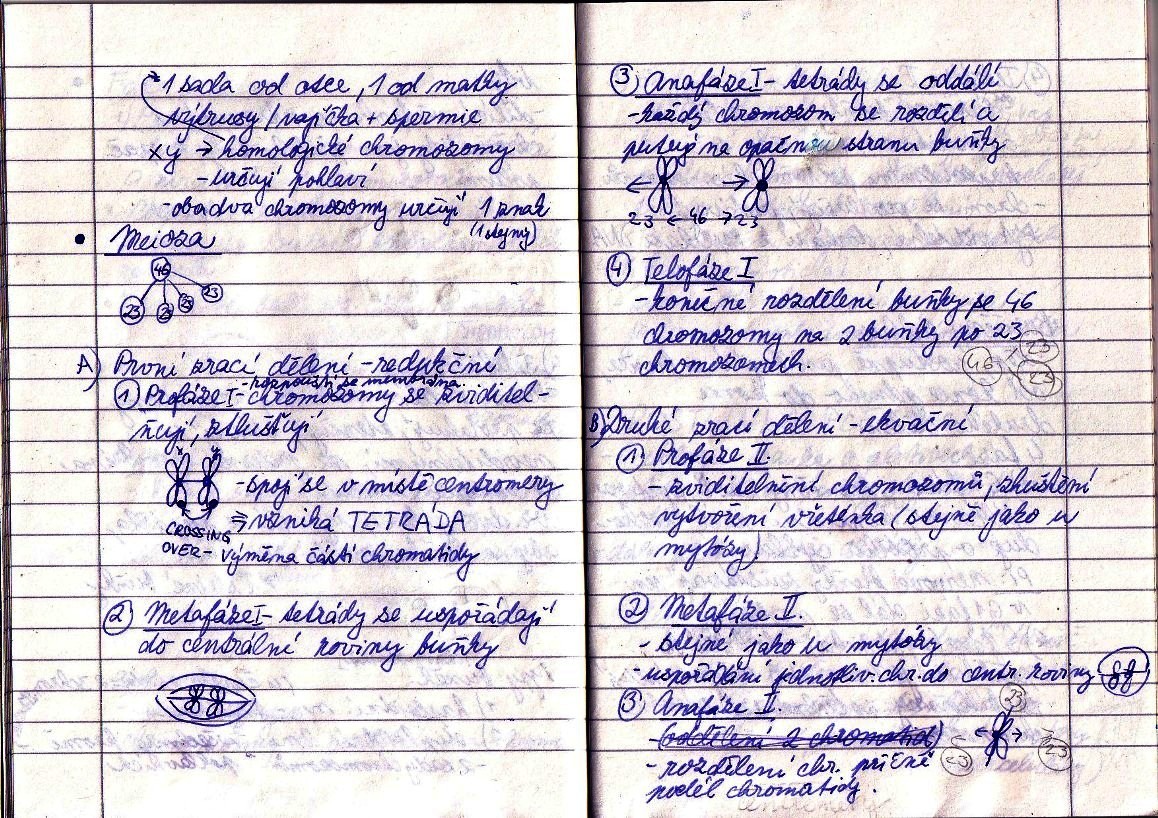 1 sada od otce, 1 od matky
výtrusy / vajíčka + spermie
xy → homologické chromozomy
- určují pohlaví
- oba dva chromozomy určují 1 znak
(1 stejný)
• Meioza
46
23 23 23 23
A) První zrací dělení - redukční
- rozpouští se membrána.
1 Profáze I - chromozomy se zviditel-
ňují, ztlušťují
x y
- spojí se v místě centromery
⇒ vzniká TETRÁDA
CROSSING
OVER - výměna částí chromatidy
2 Metafáze I - tetrády se uspořádají
do centrální roviny buňky
3 Anafáze I - tetrády se oddálí
- každý chromozom se rozdělí a
putují na opačnou stranu buňky
← →
23 ← 46 → 23
4 Telofáze I
- konečné rozdělení buňky se 46
chromozomy na 2 buňky po 23
chromozomech.
46 23
23
B) Druhé zrací dělení - ekvační
1 Profáze II
- zviditelnění chromozomů, zhuštění
vytvoření vřeténka (stejně jako u
mytózy)
2 Metafáze II.
- stejné jako u mytózy
- uspořádání jednotliv. chr. do centr. roviny
3 Anafáze II.
23
- (oddělení 2 chromatid)
23 ← → 23
- rozdělení chr. příčně
podél chromatidy.